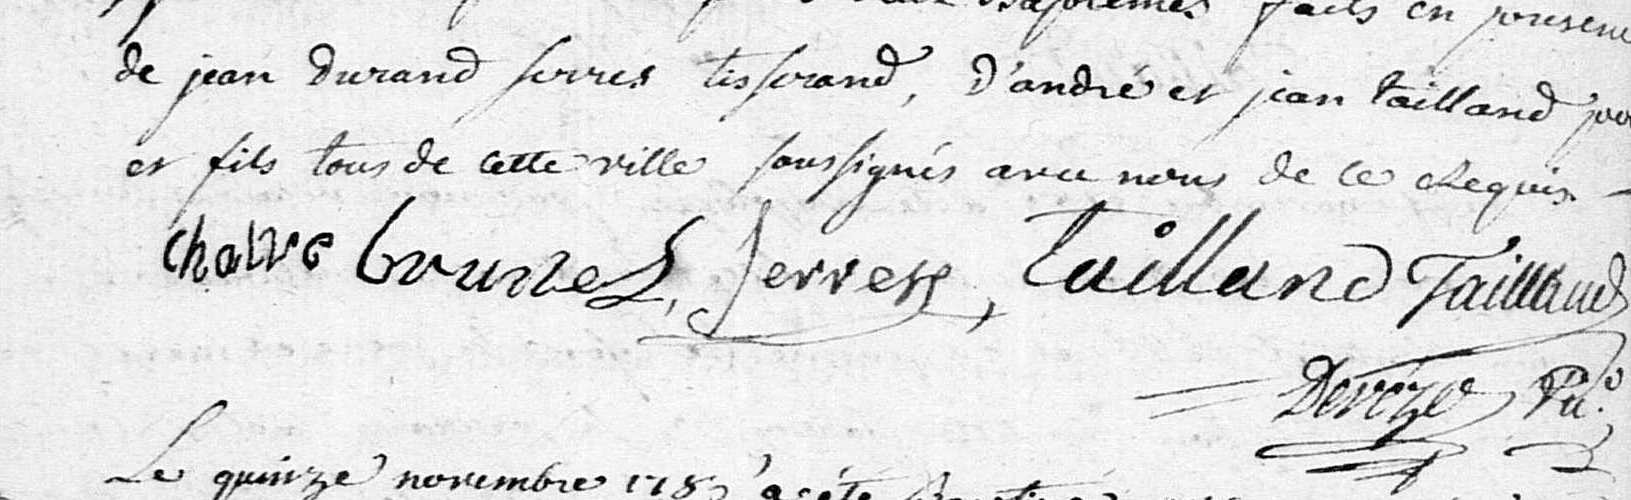 faits en presence
de jean durand serres tisserand, d'andré et jean tailland
et fils tous de cette ville soussignés avec nous de ce Requis
chalvre brunel, serres, tailland Tailland
Devèze
Le quinze novembre 178 a été